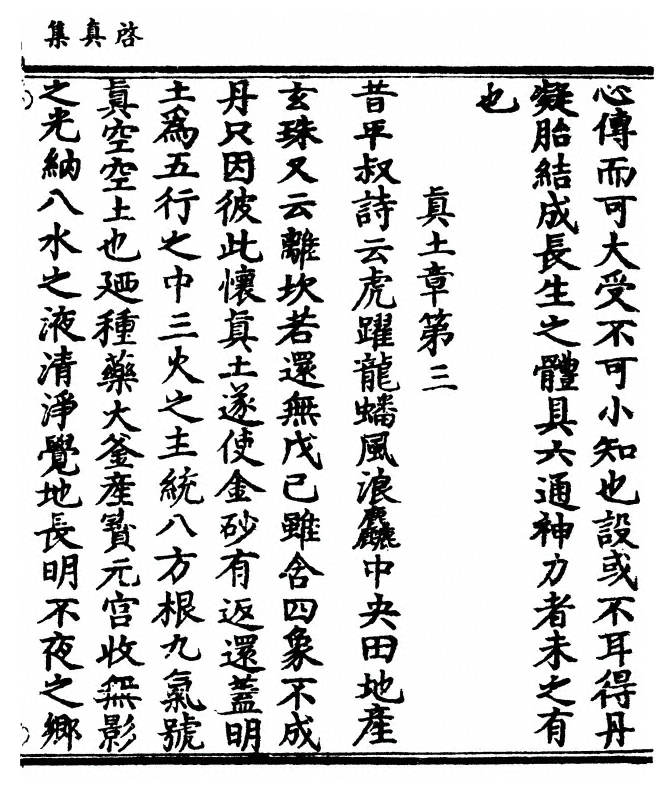 啓真集
心傳而可大受不可小知也設或不耳得丹
凝胎結成長生之體具六通神力者未之有
也
眞土章第三
昔平叔詩云虎躍龍蟠風浪麤中央田地産
玄珠又云離坎若還無戊己雖含四象不成
丹只因彼此懷眞土遂使金砂有返還蓋明
土為五行之中三火之主統八方根九氣號
眞空空土也廼種藥大釜産寳元宫收無影
之光納八水之液清淨覺地長明不夜之鄉